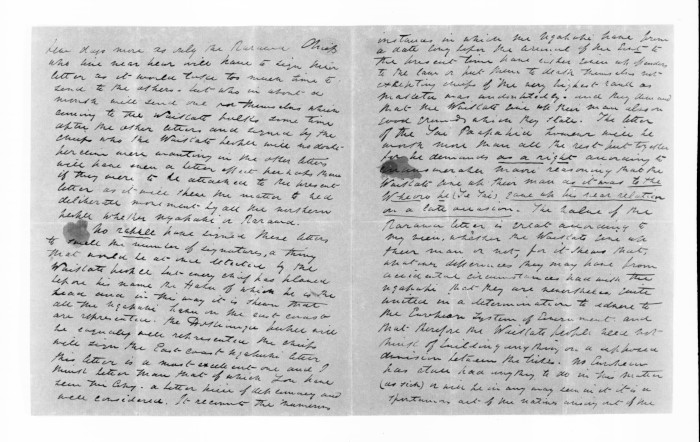 few days more as only the Rarawa Chiefs
who live near here will have to sign their
letter as it would take too much time to
send to the others. but who in about a
month will send one themselves which
coming to the Waikato people some time
after the other letters and signed by the
chiefs who the Waikato people will no doubt
perceive were wanting in the other letters
will have even a letter effect perhaps than
if they were to be attached to the present
letter as it will shew the matter to be a
deliberate movement by all the northern
people whether Ngapuhi or Rarawa.
No rabble have signed these letters
to swell the number of signatures, a thing
that would be at once detected by the
Waikato people but every chief has placed
before his name the Hapu of which he is the
head and in this way it is shewn that
all the Ngapuhi Hapu on the east coast
are represented. the Hokianga people will
be equally well represented the chiefs
will sign the East coast Ngapuhi letter
this letter is a most excellent one and I
think better than that of which you have
seen the copy. a letter piece of diplomacy and
well considered. It recounts the numerous
instances in which the Ngapuhi have from
a date long before the arrival of the Govt to
the present time have either given up offenders
to the law or put them to death themselves not
excepting chiefs of the very highest rank as
and they demand
that the Waikato give up their man also on
good grounds which they state. The letter
of the Tai Papahia however will be
worth more than all the rest put together
for he demands as a right according to
Maori reasoning that the
Waikato give up their man as it was to the
Wheoro he (Te Tai) gave up his near relation
on a late occasion. The value of the
Rarawa letter is great according to
my view, whether the Waikato give up
their man or not, for it shews that,
whatever differences they may have from
accidental circumstances had with the
Ngapuhi that they are nevertheless quite
united in a determination to adhere to
the European System of Government and
that therefore the Waikato people need not
think of building anything on a supposed
dimension between the tribes. No European
has had anything to do in this matter
or will he in any way seen in it it is a
spontaneous act of the natives arising out of the